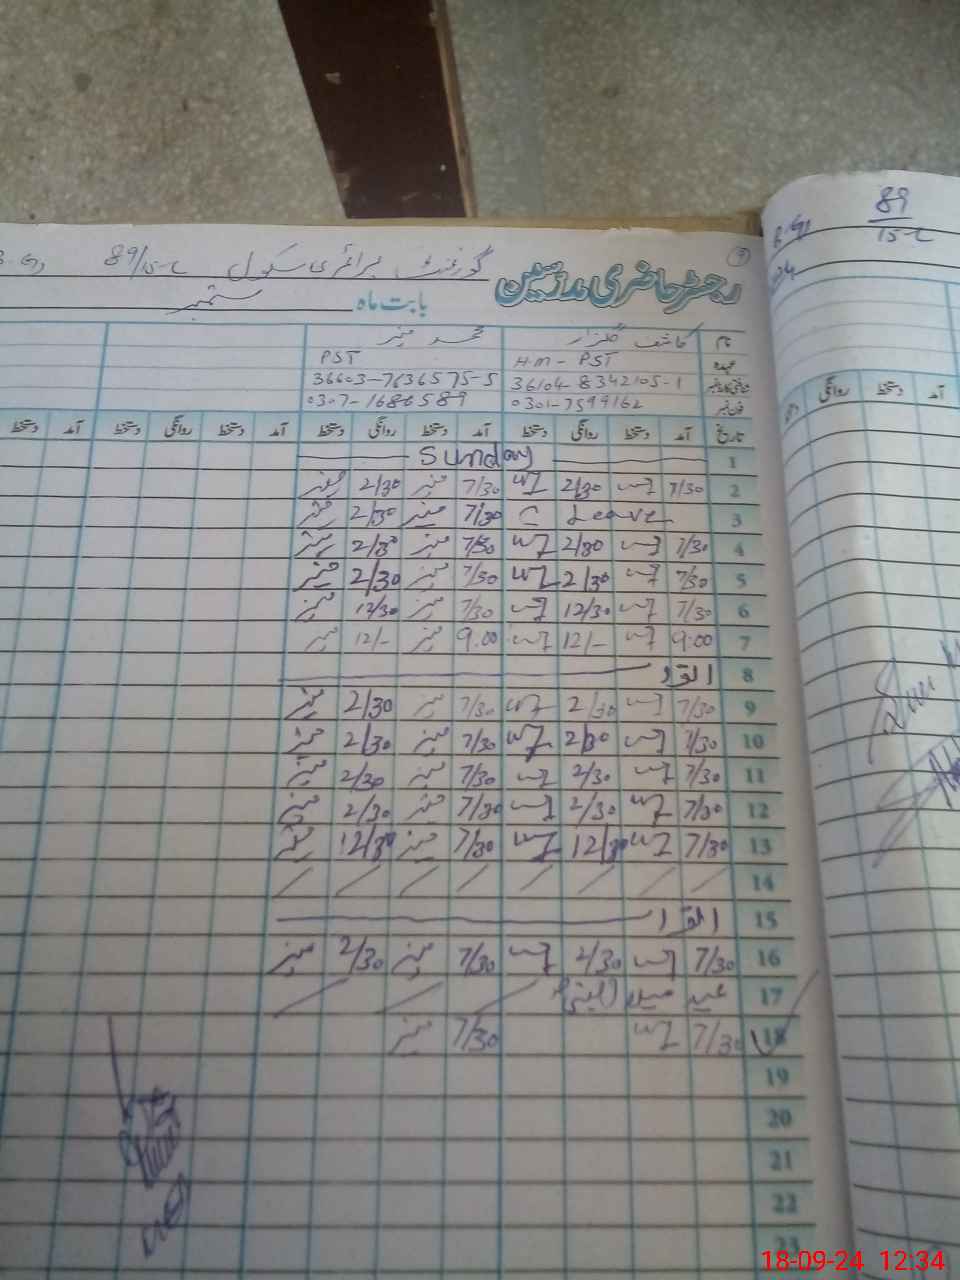 رجسٹر حاضری مدرسین گورنمنٹ پرائمری سکول 89/15-L
بابت ماہ ستمبر
نام کاشف گلزار محمد منیر
عہدہ H.M - PST PST
شناختی کارڈ نمبر 36104-8342105-1 36603-7636575-5
فون نمبر 0301-7599162 0307-1686589
تاریخ آمد دستخط روانگی دستخط آمد دستخط روانگی دستخط آمد دستخط روانگی دستخط آمد دستخط
1 Sunday
2 7/30 2/30 7/30 منیر 2/30 منیر
3 C Leave 7/30 منیر 2/30 منیر
4 7/30 2/30 7/30 منیر 2/30 منیر
5 7/30 2/30 7/30 منیر 2/30 منیر
6 7/30 12/30 7/30 منیر 12/30 منیر
7 9.00 12/- 9.00 منیر 12/- منیر
8 اتوار
9 7/30 2/30 7/30 منیر 2/30 منیر
10 7/30 2/30 7/30 منیر 2/30 منیر
11 7/30 2/30 7/30 منیر 2/30 منیر
12 7/30 2/30 7/30 منیر 2/30 منیر
13 7/30 12/30 7/30 منیر 12/30 منیر
14
15 اتوار
16 7/30 2/30 7/30 منیر 2/30 منیر
17 عید میلاد النبیؐ
18 7/30 7/30 منیر
19
20
21
22
23
89
15-L
آمد دستخط روانگی
18-09-24 12:34